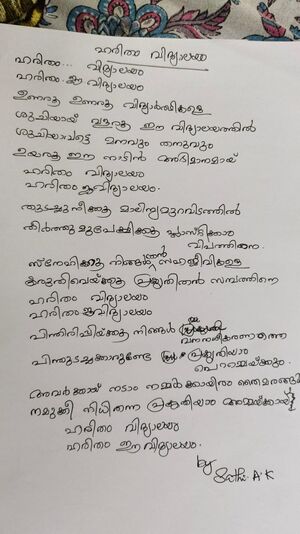 ഹരിതം വിദ്യാലയം
ഹരിതം... വിദ്യാലയം
ഹരിതം ഈ വിദ്യാലയം
ഉണരൂ ഉണരൂ വിദ്യാർത്ഥികളെ
ശുചിയായ് വളരുക ഈ വിദ്യാലയത്തിൽ
ശുചിയാവട്ടെ മനവും തനുവും
ഉയരുക ഈ നാടിൻ അഭിമാനമായ്
ഹരിതം വിദ്യാലയം
ഹരിതം ഈ വിദ്യാലയം.
തുടച്ചുനീക്കുക മാലിന്യമുറവിടത്തിൽ
തീർത്തുമുപേക്ഷിക്കൂ പ്ലാസ്റ്റിക്കാം
വിപത്തിനെ.
സ്നേഹിക്കൂ നിങ്ങൾ സഹജീവികളെ
കരുതിവെയ്ക്കുക പ്രകൃതിതൻ സമ്പത്തിനെ
ഹരിതം വിദ്യാലയം
ഹരിതം ഈ വിദ്യാലയം
പിന്തിരിയിയ്ക്കൂ നിങ്ങൾ ഈ
വനനശീകരണത്തെ
പിന്തുടരുക്കാനുണ്ടേ പ്രകൃതിയാം
പെറ്റമ്മയ്ക്കും.
അവർക്കായ് നടാം നമ്മൾക്കായിരം തൈമരങ്ങൾ
നമുക്കീ നിധി തന്ന പ്രകൃതിയാം അമ്മയ്ക്കായ്
ഹരിതം വിദ്യാലയം
ഹരിതം ഈ വിദ്യാലയം.
by
Sathi. A. K